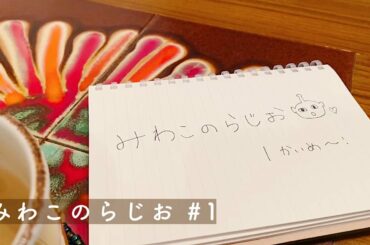 みわこのらじお
1かいめ〜!
みわこのらじお #1